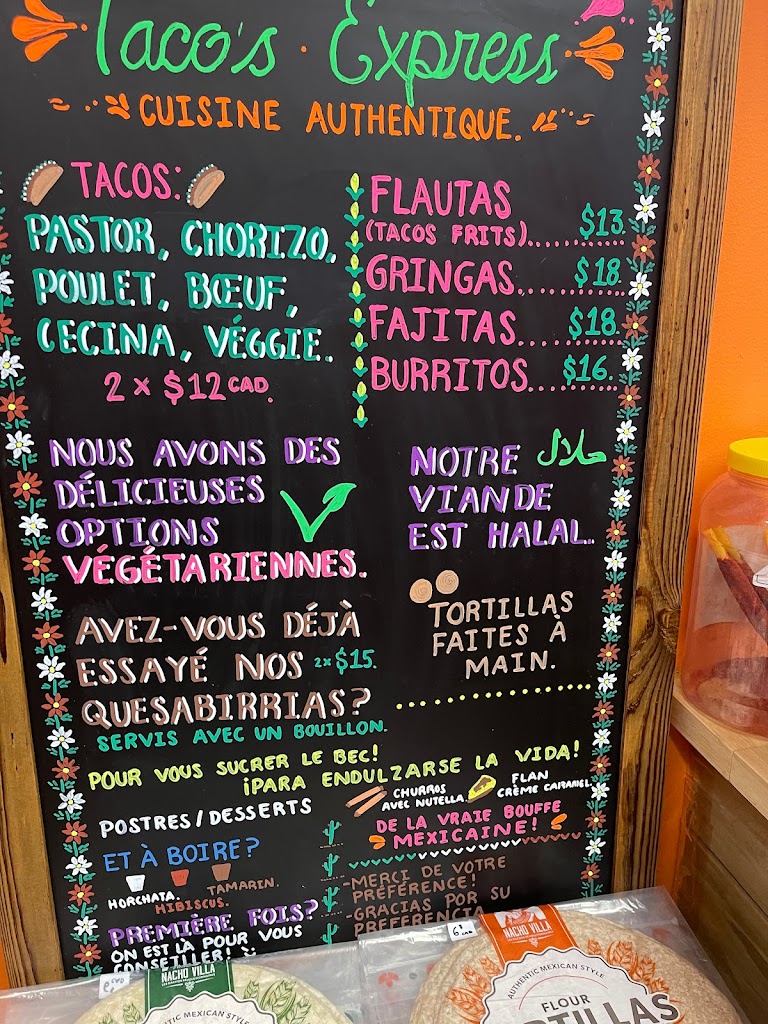 Taco's · Express
CUISINE AUTHENTIQUE.
TACOS:
PASTOR, CHORIZO,
POULET, BŒUF,
CECINA, VÉGGIE.
2 x $12 CAD.
FLAUTAS
(TACOS FRITS)...... $13.
GRINGAS........ $18.
FAJITAS........ $18.
BURRITOS.... $16.
NOUS AVONS DES
DÉLICIEUSES
OPTIONS
VÉGÉTARIENNES.
NOTRE حلال
VIANDE
EST HALAL..
TORTILLAS
FAITES À
MAIN.
AVEZ-VOUS DÉJÀ
ESSAYÉ NOS 2x $15.
QUESABIRRIAS?
SERVIS AVEC UN BOUILLON.
POUR VOUS SUCRER LE BEC!
¡PARA ENDULZARSE LA VIDA!
POSTRES/DESSERTS
CHURROS
AVEC NUTELLA.
FLAN
CRÈME CARAMEL.
DE LA VRAIE BOUFFE
MEXICAINE!
ET À BOIRE?
HORCHATA.
HIBISCUS.
TAMARIN.
-MERCI DE VOTRE
PRÉFÉRENCE!
-GRACIAS POR SU
PREFERENCIA
PREMIÈRE FOIS?
ON EST LÀ POUR VOUS
CONSEILLER!
NACHO VILLA
AUTHENTIC MEXICAN STYLE
FLOUR
NACHO VILLA
MEXICAN STYLE